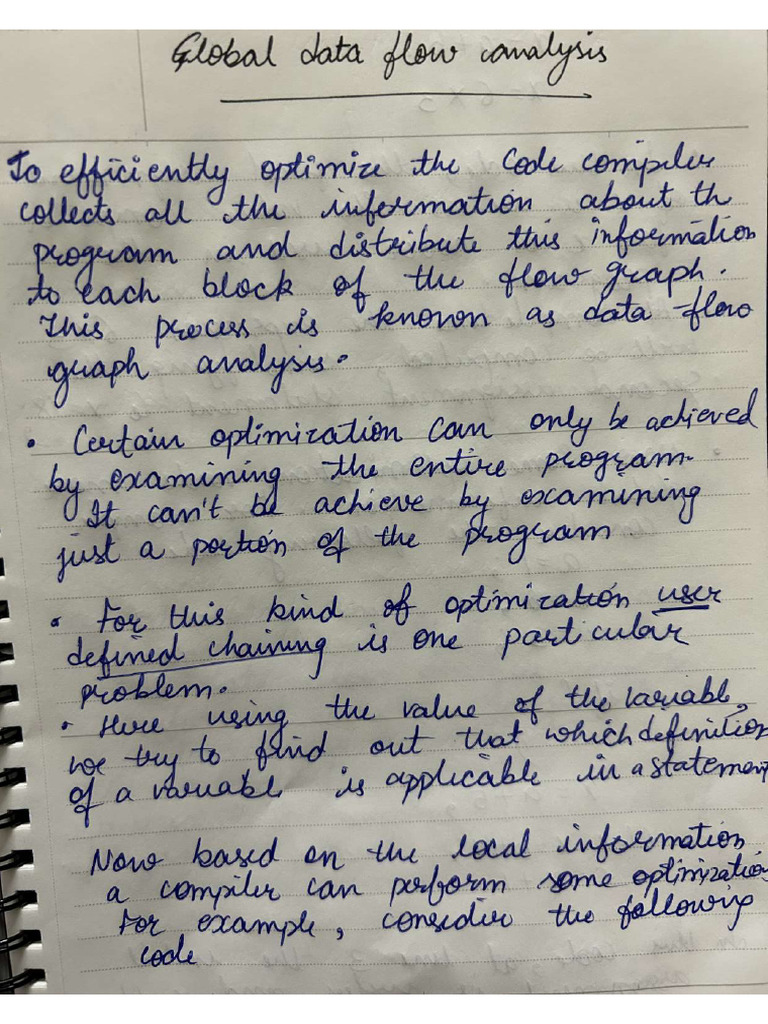 Global data flow analysis
To efficiently optimize the Code compiler
collects all the information about th
program and distribute this information
to each block of the flow graph.
This process is known as data-flow
graph analysis.
• Certain optimization can only be achieved
by examining the entire program.
It can't be achieve by examining
just a portion of the program
• For this kind of optimization user
defined chaining is one particular
problem.
• Here using the value of the variable,
we try to find out that which definition
of a variable is applicable in a statement
Now based on the local information
a compiler can perform some optimization
For example, consider the following
code